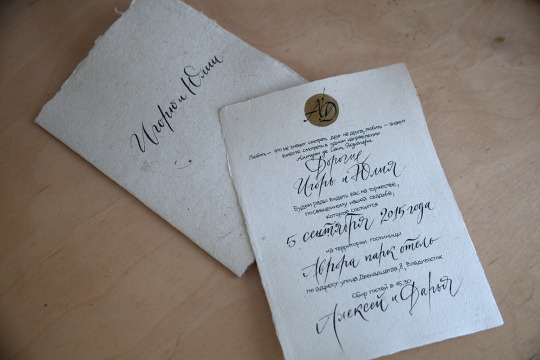 Игорю и Юлии
АД
Любить — это не значит смотреть друг на друга, любить — значит
вместе смотреть в одном направлении.
Антуан де Сент-Экзюпери
Дорогие
Игорь и Юлия
Будем рады видеть вас на торжестве,
посвященному нашей свадьбе,
которое состоится
5 сентября 2015 года
на территории гостиницы
Аврора парк отель
по адресу: улица Двенадцатая, 8, Владивосток
Сбор гостей в 15:30
Алексей и Дарья